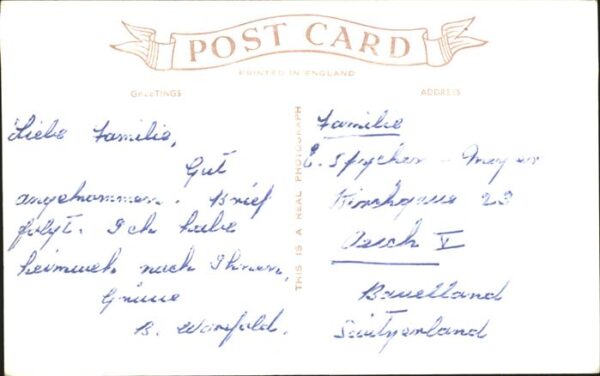 POST CARD
PRINTED IN ENGLAND
GREETINGS
ADDRESS
Liebe Familie,
Gut
angekommen. Brief
folgt. Ich habe
heimweh nach Ihnen,
Grüsse
B.
THIS IS A REAL PHOTOGRAPH
Familie
E. Spycher - Meyer
Kirchgasse 23
Aesch V
Baselland
Switzerland